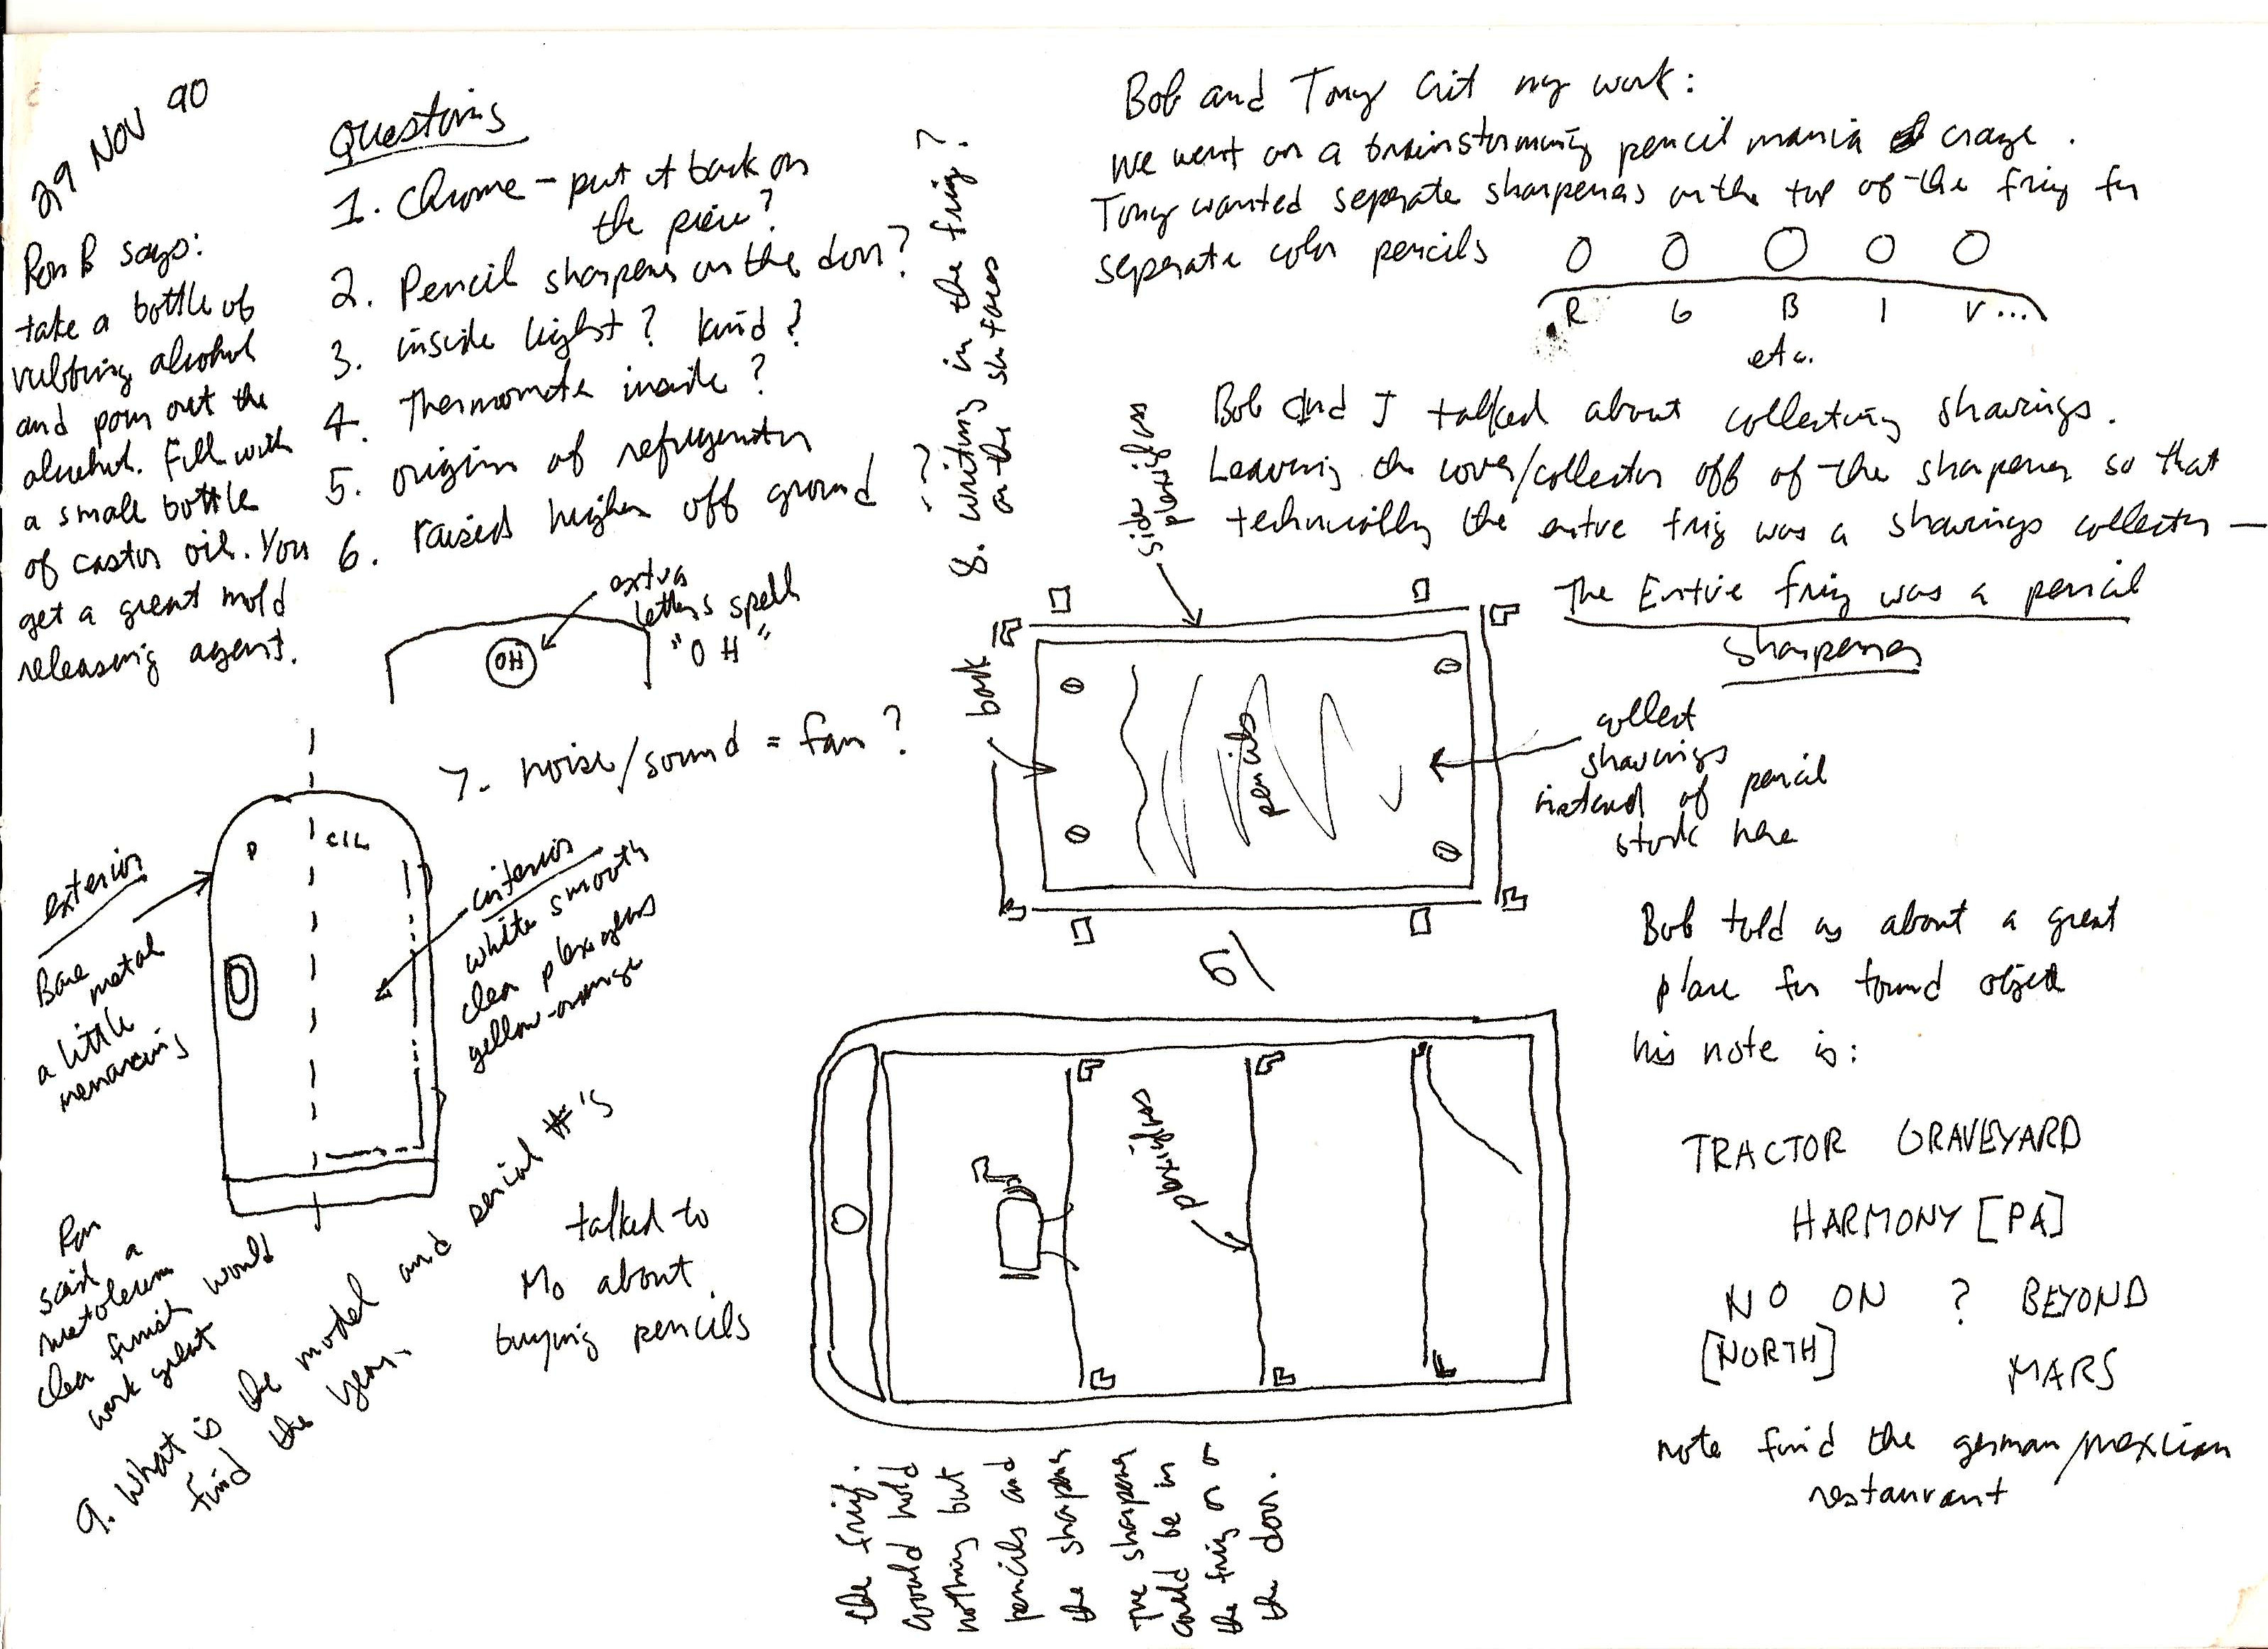 29 NOV 90
Ron B says:
take a bottle of
rubbing alcohol
and pour out the
alcohol. Fill with
a small bottle
of castor oil. You
get a great mold
releasing agent.
Questions
1. Chrome - put it back on
the piece?
2. Pencil sharpener on the door?
3. inside light? kind?
4. Thermometer inside?
5. origins of refrigerator
6. raised higher off ground
extra
letters spell
"OH"
OH
7. noise/sound = fan?
8. writing in the frig?
on the surfaces
exterior
Bare
metal
a little
menacing
interior
white smooth
clear plexiglass
yellow-orange
Ron
said a
clear finish would
work great
9. What is the model and serial #'s
find the year.
talked to
Mo about
buying pencils
Bob and Tony Crit my work:
We went on a brainstorming pencil mania craze.
Tony wanted seperate sharpeners on the top of the frig for
seperate color pencils
R G B I V...
etc.
Bob and I talked about collecting shavings.
Leaving the cover/collector off of the sharpener so that
technically the entire frig was a shavings collector —
The Entire frig was a pencil
sharpener
side
plexiglass
back
pencils
collect
shavings
instead of pencil
stock here
plexiglass
the frig.
could hold
nothing but
pencils and
the sharpener
The sharpener
could be in
the frig or on
the door.
Bob told us about a great
place for found object
his note is:
TRACTOR GRAVEYARD
HARMONY [PA]
NO ON ? BEYOND
[NORTH]
MARS
note find the german/mexican
restaurant